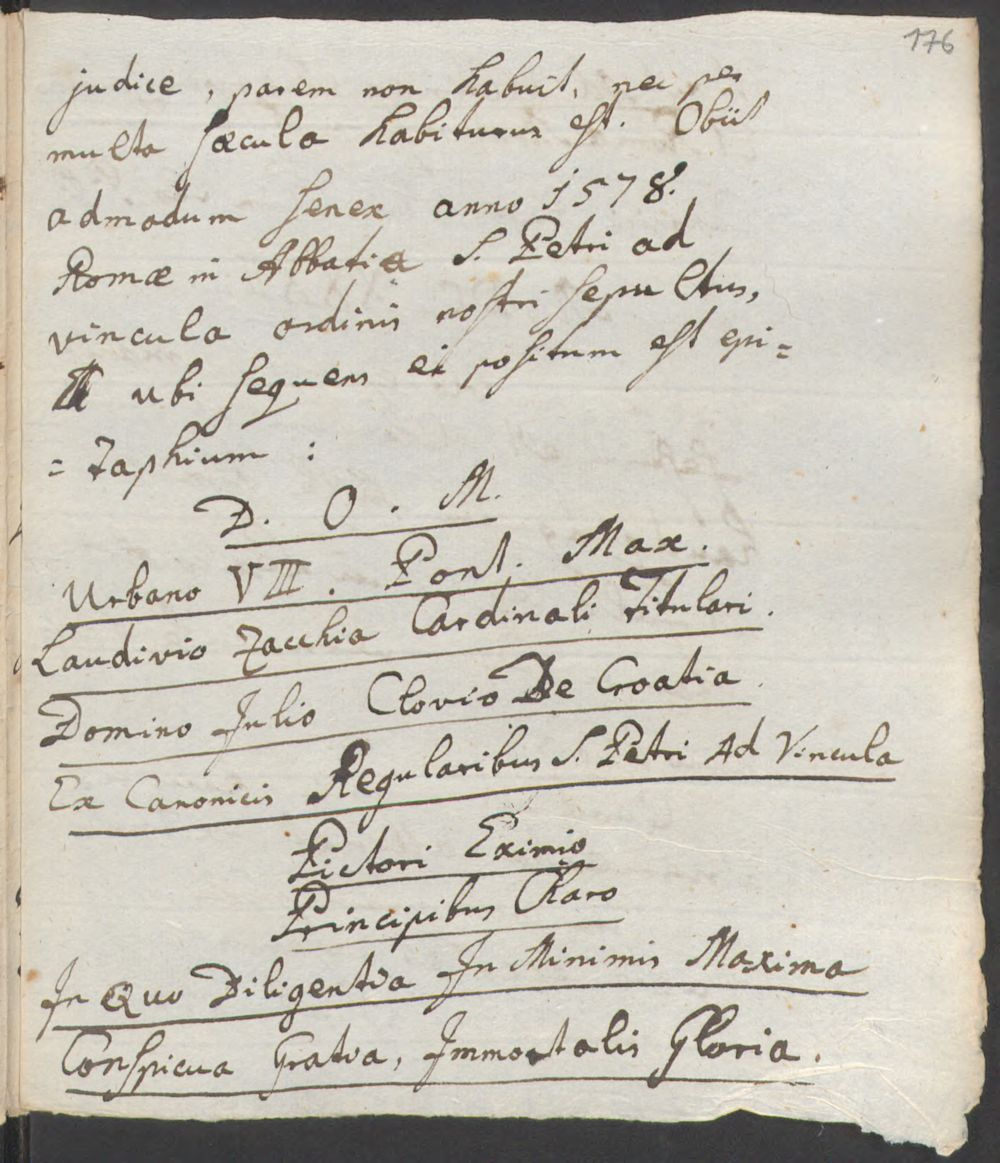 176
judice, parem non habuit, nec per
multa sæcula habiturus est. Obiit
admodum senex anno 1578.
Romæ in Abbatia S. Petri ad
vincula ordinis nostri sepultus,
ubi sequens ei positum est epi=
=taphium :
D. O. M.
Urbano VIII. Pont. Max.
Laudivio Zacchia Cardinali Titulari.
Domino Julio Clovio De Croatia.
Ex Canonicis Regularibus S. Petri Ad Vincula
Pictori Eximio
Principibus Charo
In Quo Diligentia In Minimis Maxima
Conspicua Gratia, Immortalis Gloria.